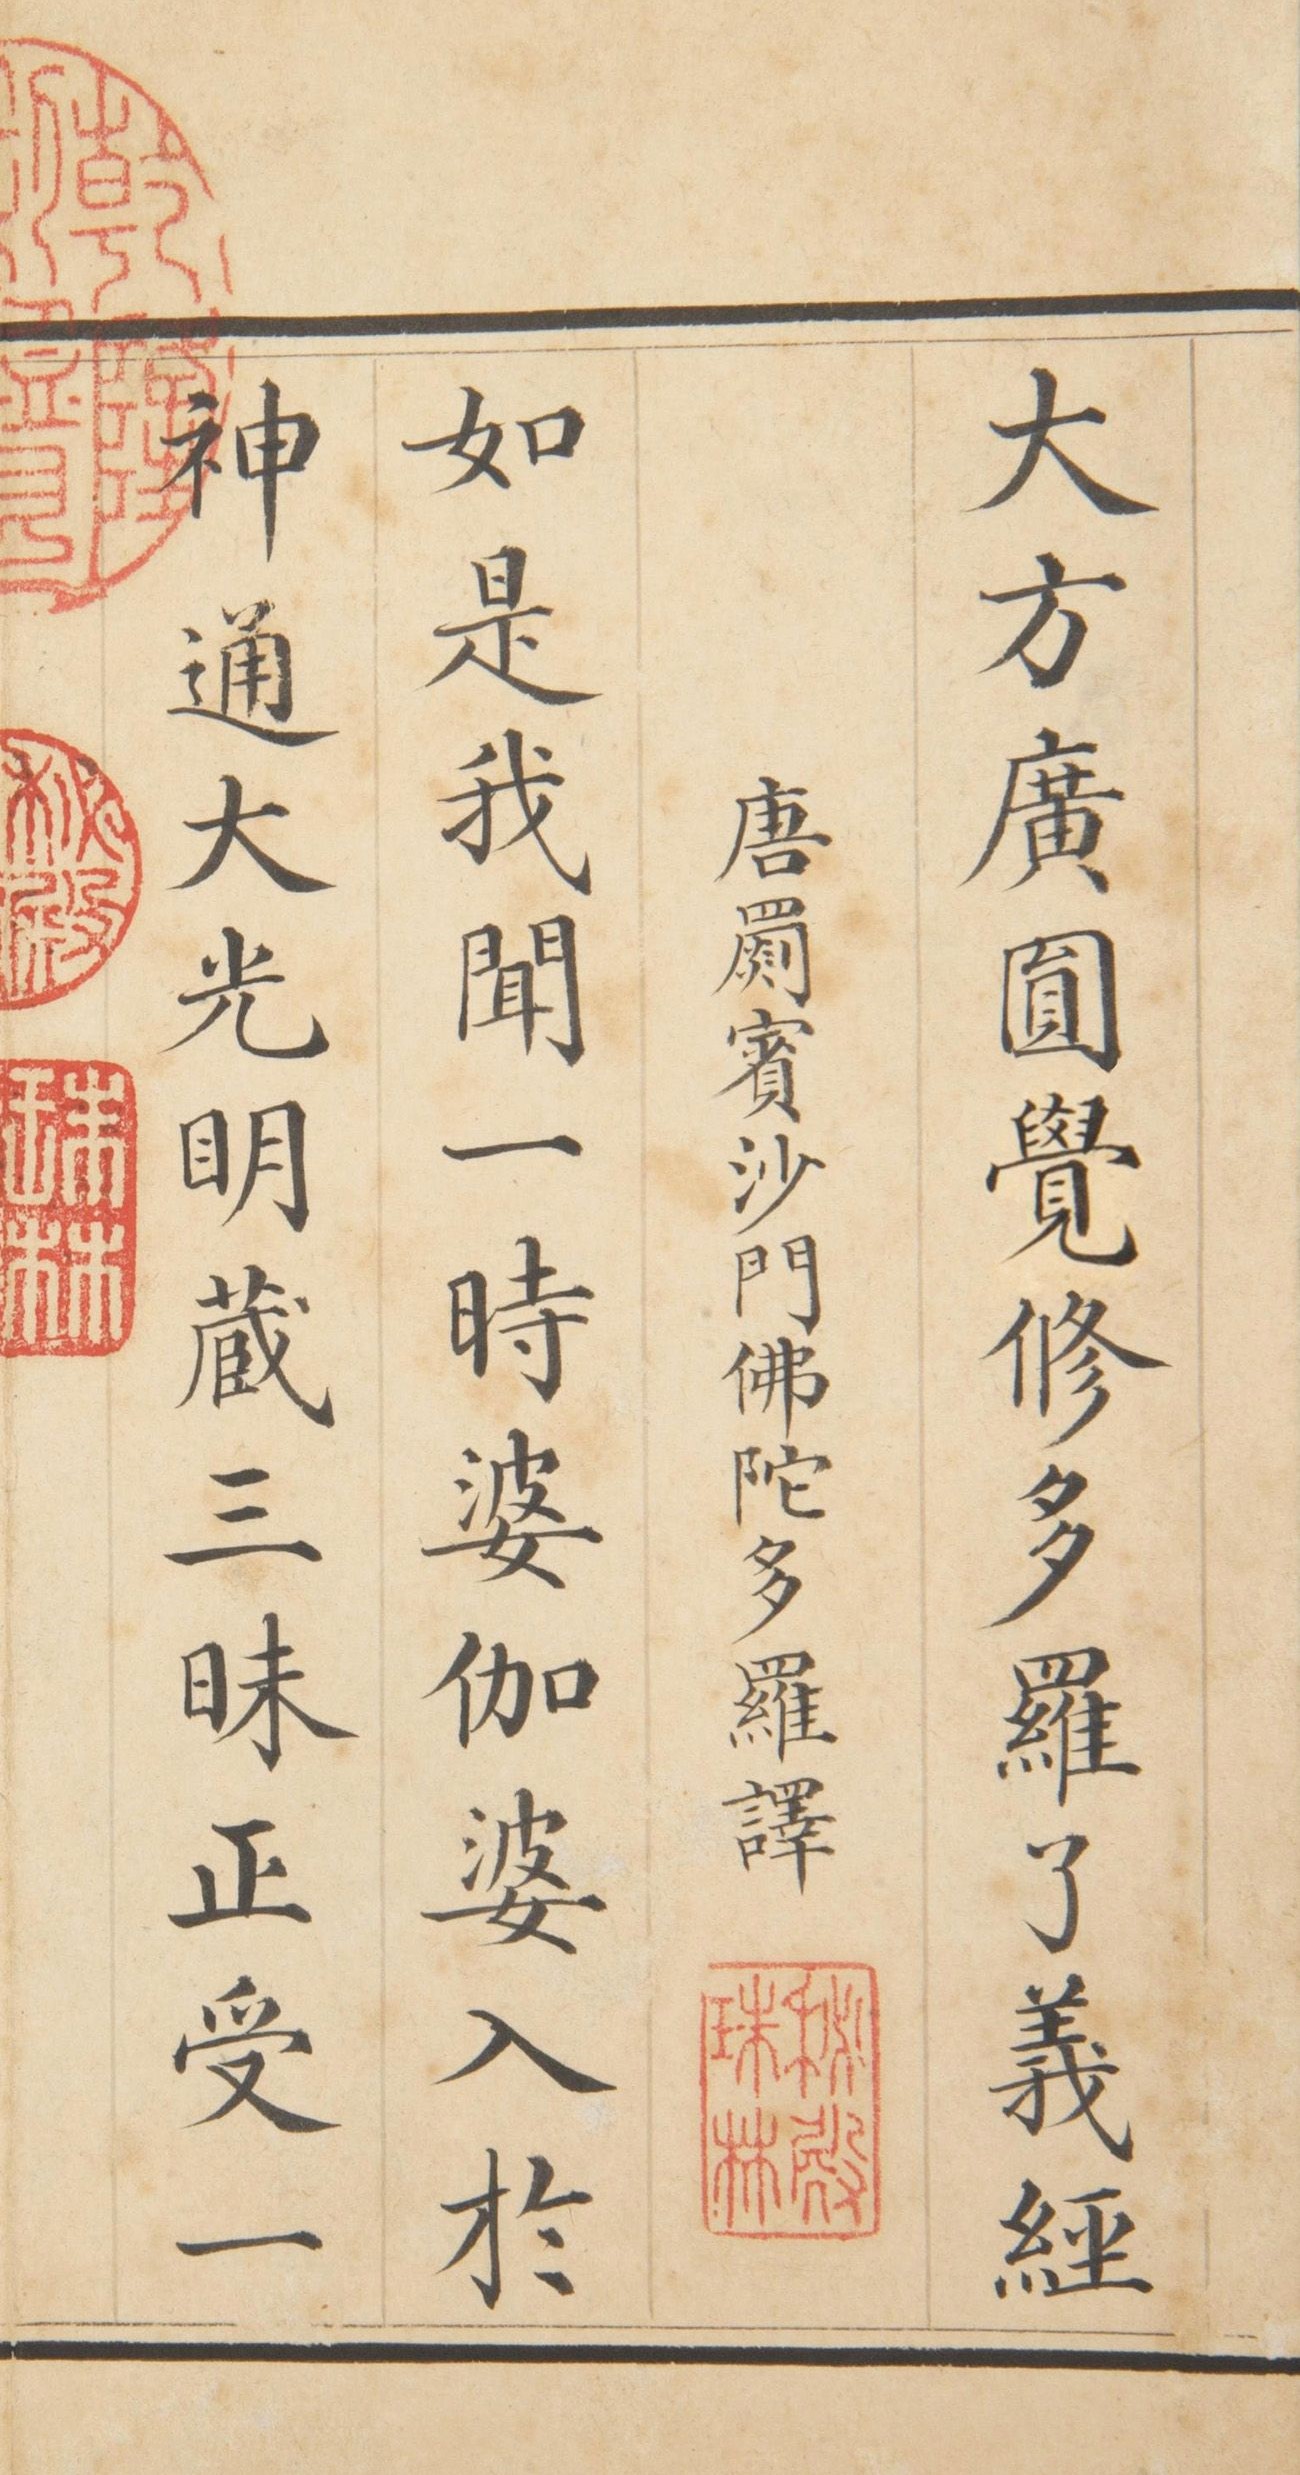 大方廣圎覺修多羅了義經
唐罽賓沙門佛陀多羅譯
秘殿珠林
如是我聞一時婆伽婆入於
神通大光明蔵三昧正受一
秘殿
珠林